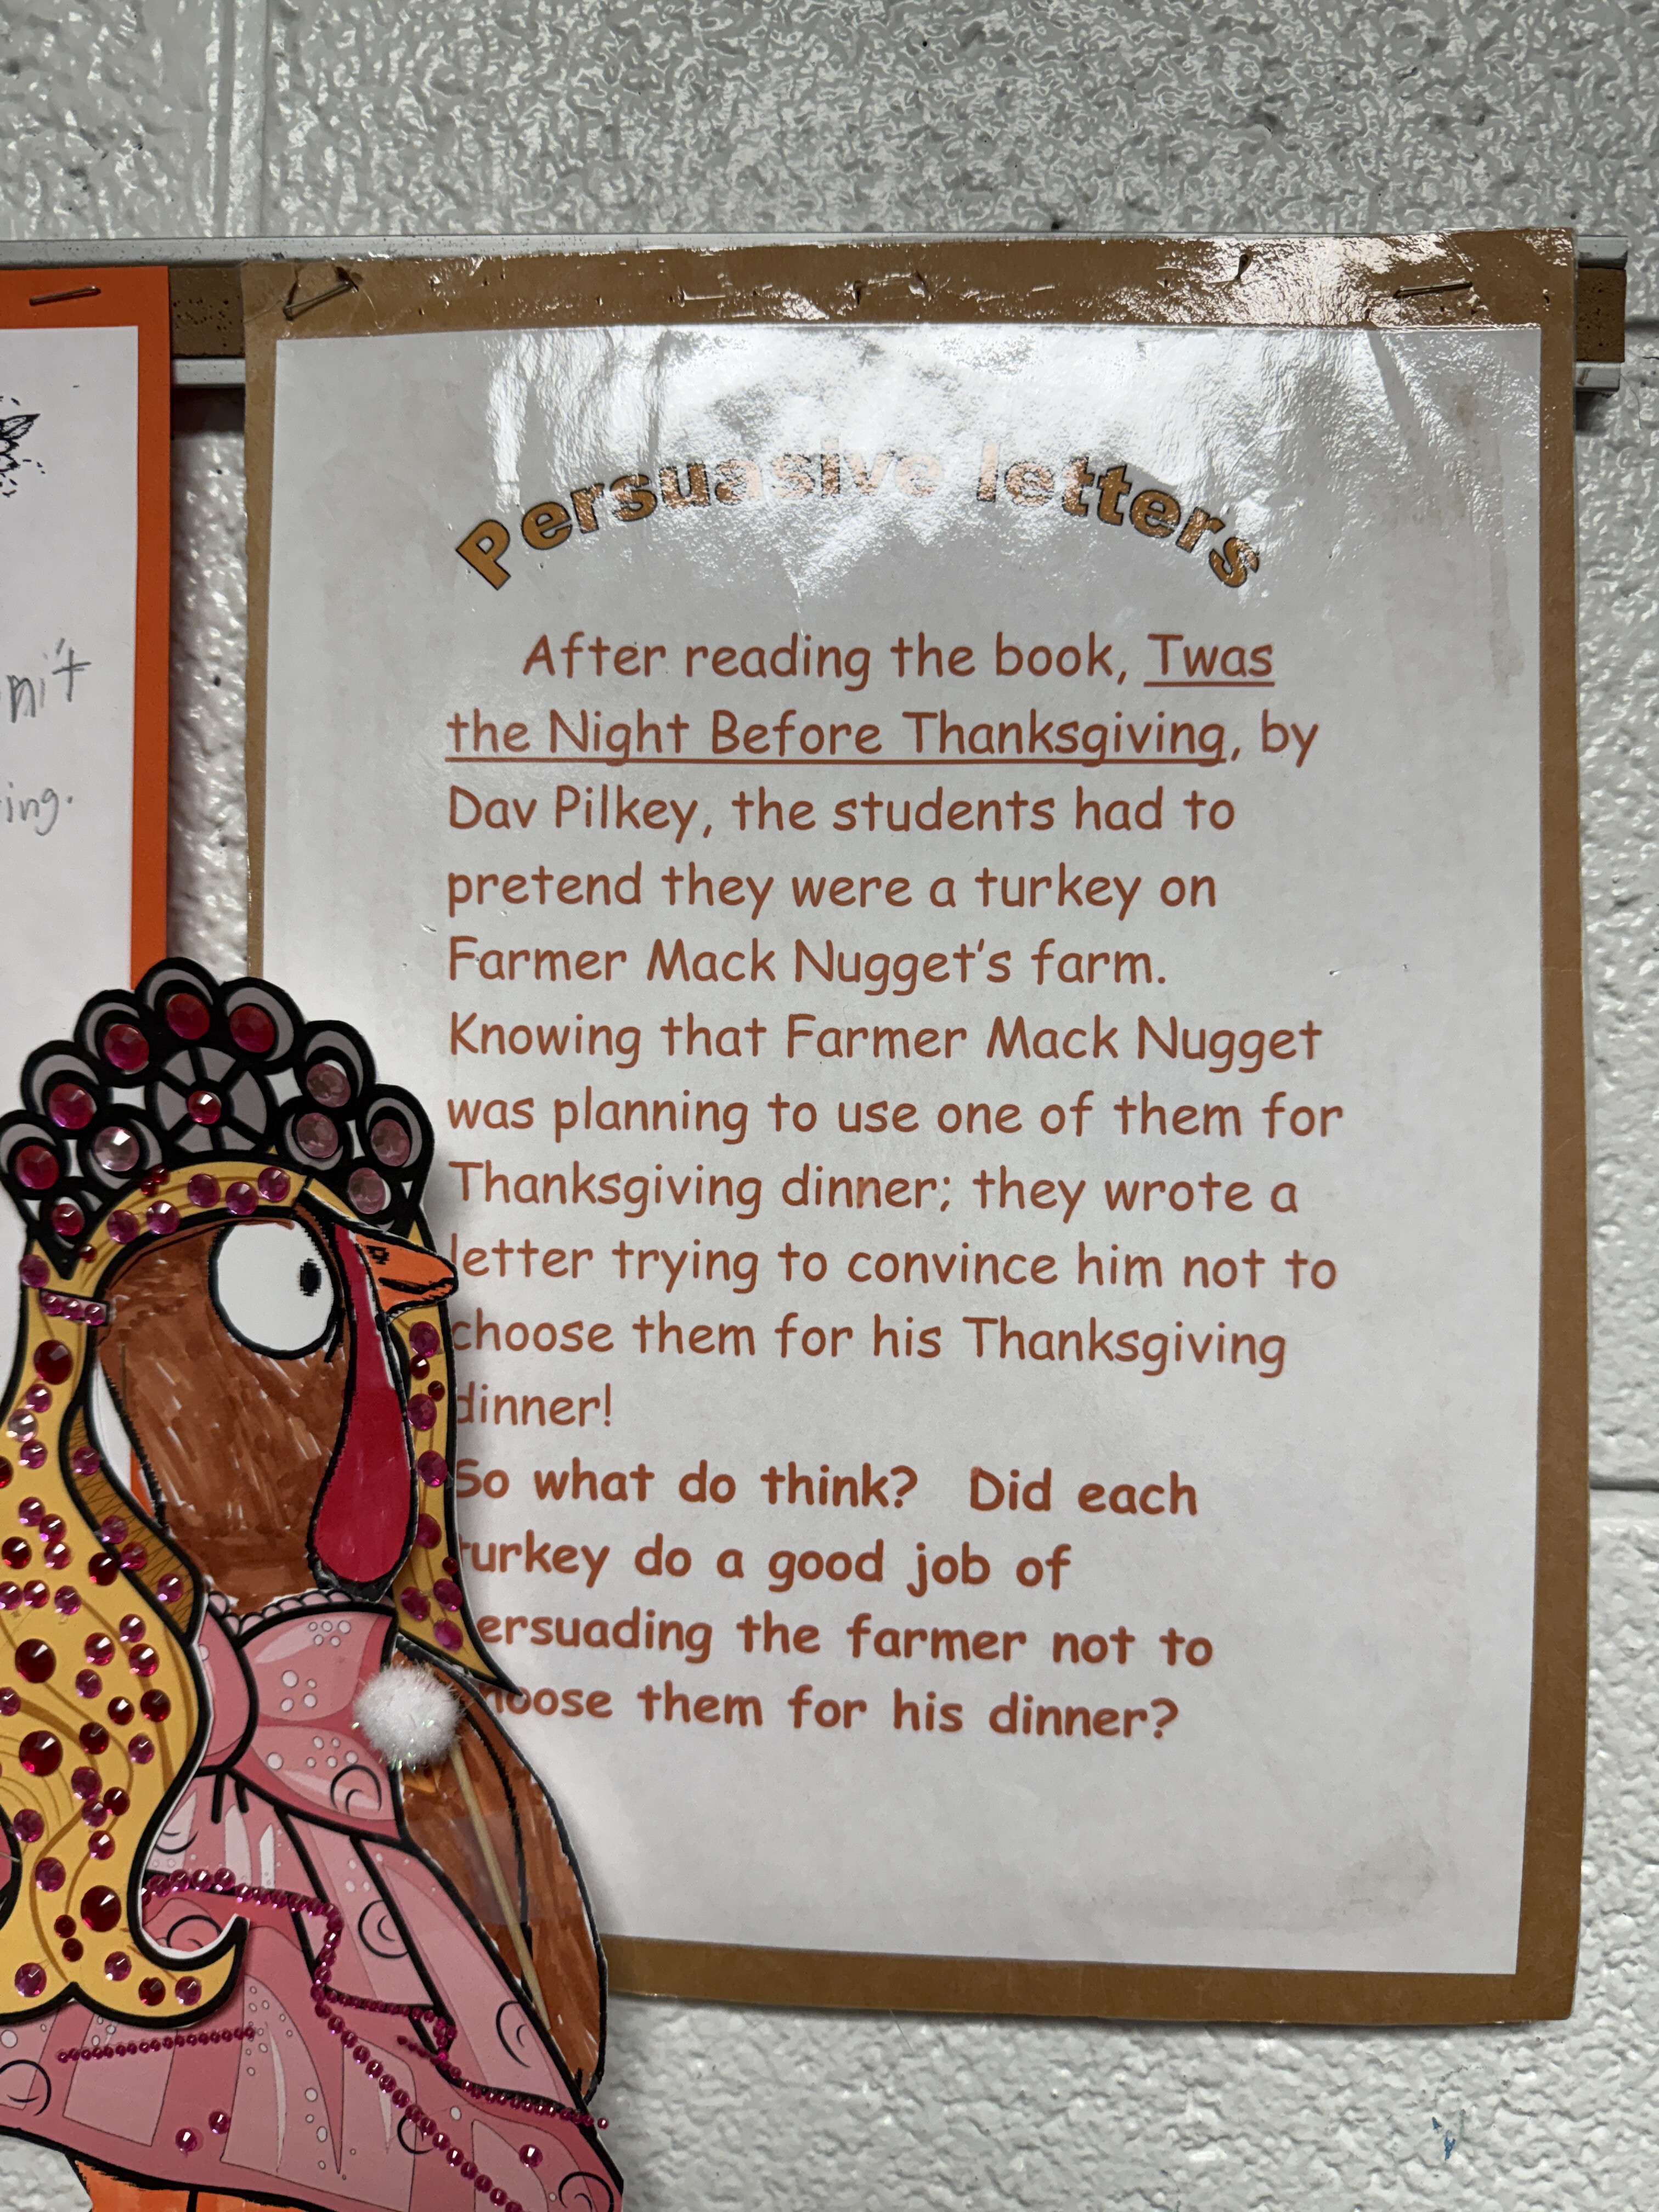 Persuasive letters
After reading the book, Twas
the Night Before Thanksgiving, by
Dav Pilkey, the students had to
pretend they were a turkey on
Farmer Mack Nugget's farm.
Knowing that Farmer Mack Nugget
was planning to use one of them for
Thanksgiving dinner; they wrote a
letter trying to convince him not to
choose them for his Thanksgiving
dinner!
So what do think? Did each
turkey do a good job of
persuading the farmer not to
choose them for his dinner?